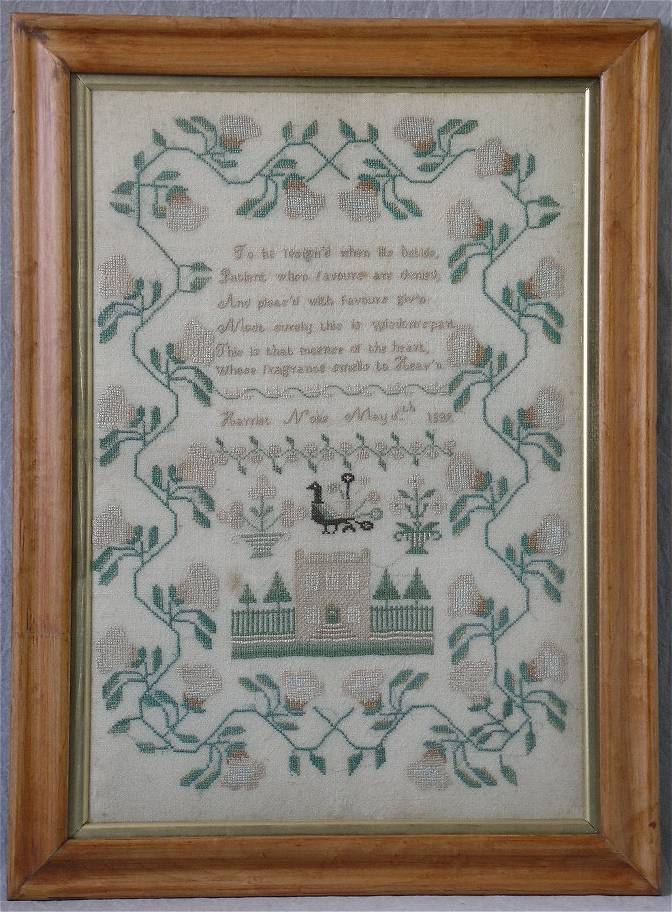 To be resign'd when ills betide,
Patient when favours are denied,
And pleas'd with favours giv'n
Most surely this is wisdoms part
This is that incense of the heart,
Whose fragrance smells to Heav'n
Harriet May th